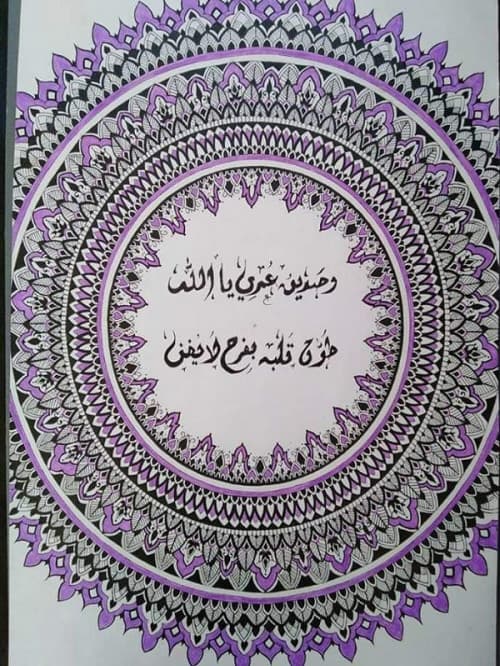 وصديق عمري يا الله
طوق قلبه بفرح لا يفنى